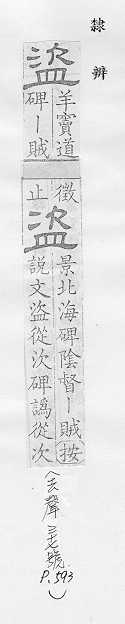 隸辨
盜
羊竇道
碑｜賊
徵
止
盜
景北海碑陰督｜賊(按)
說文盜從㳄碑譌從次
(去聲 號 P.593)